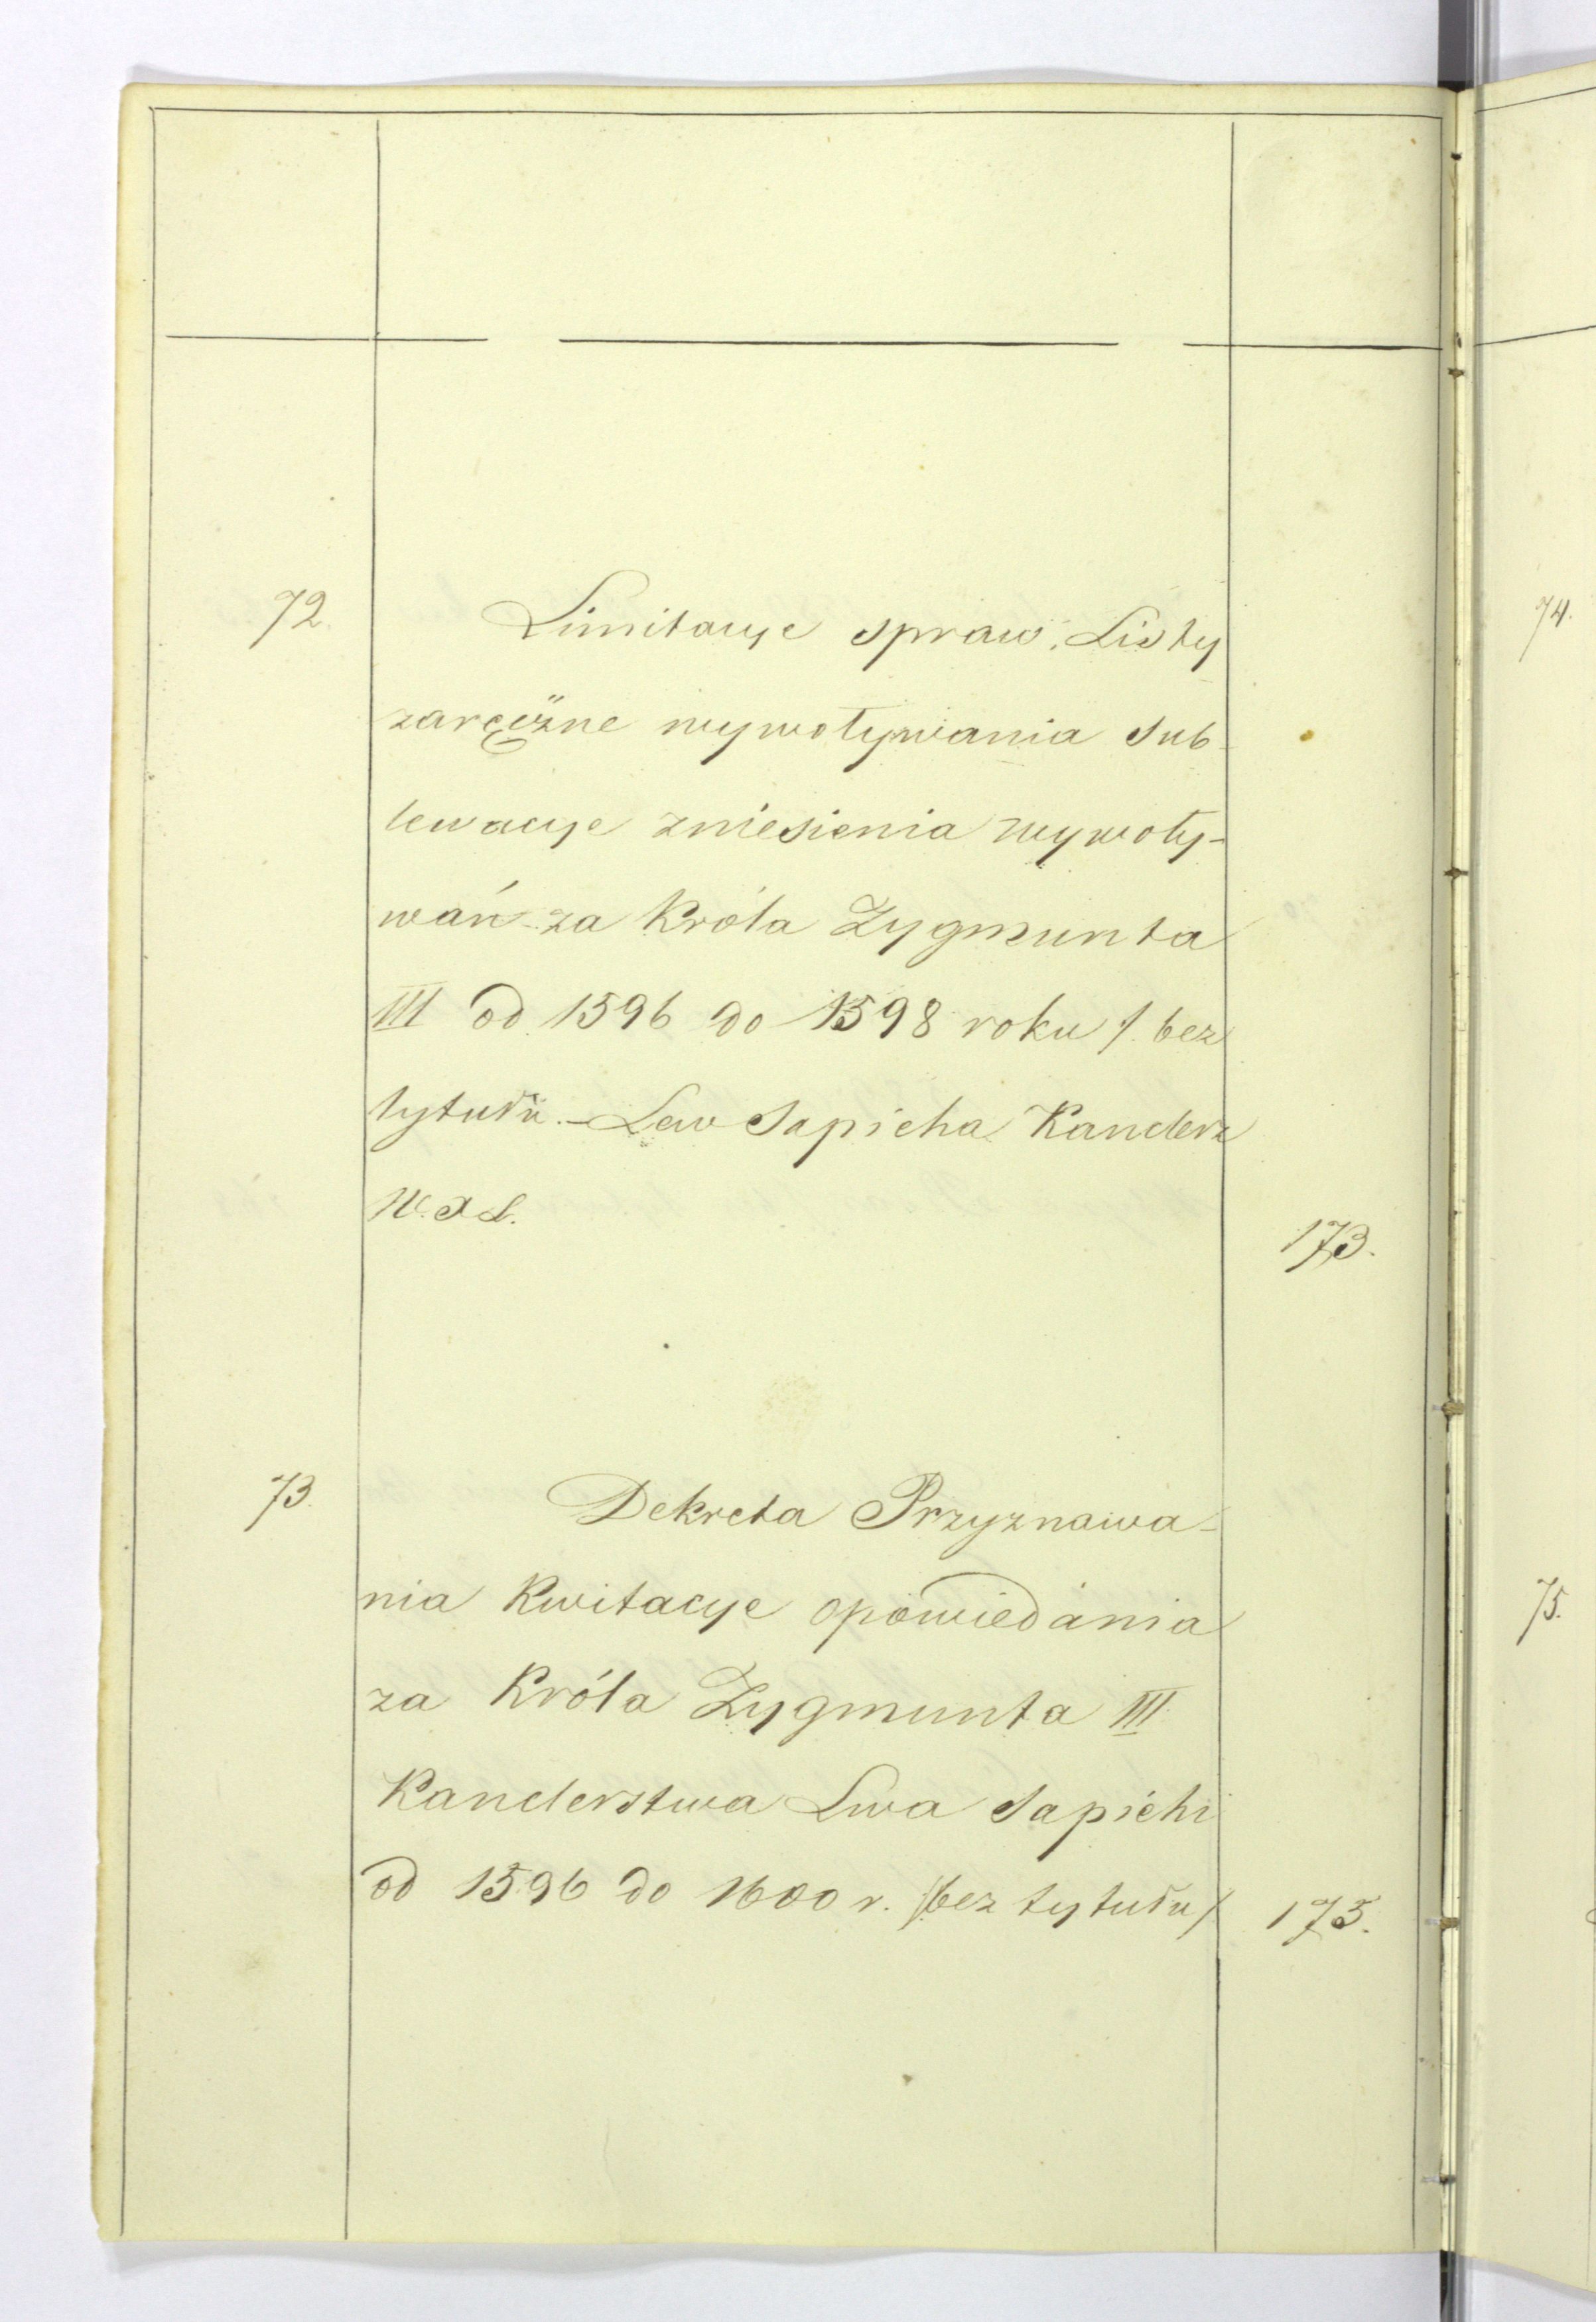 72. Limitacye spraw, Listy
zaręczne wywoływania Sub-
lewacye zniesienia wywoły-
wań za Króla Zygmunta
III od 1596 do 1598 roku /. bez
tytułu. – Lew Sapieha Kanclerz
W. X L.
173.
73. Dekreta Przyznawa-
nia Kwitacye opowiedania
za Króla Zygmunta III
Kanclerstwa Lwa Sapiehi
od 1596 do 1600 r. /bez tytułu/ 175.
74.
75.